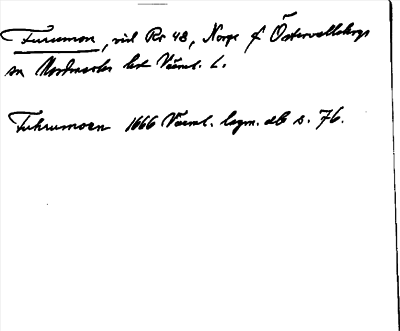 Furumon, vid Rr 48, Norge f Östervallskogs
sn Nordmarks hd Värml. L.
Fuhrumoen 1666 Värml. lagm. db s. 76.